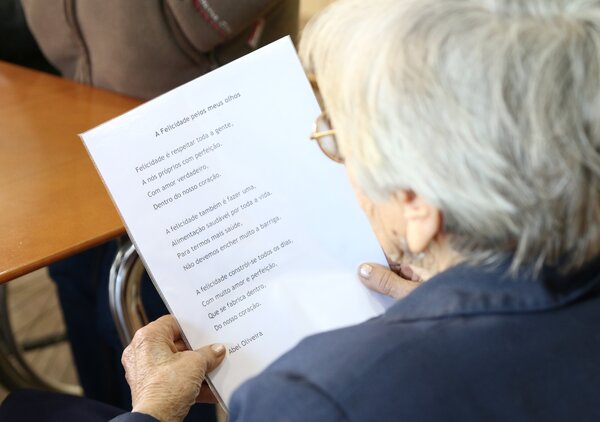 A Felicidade pelos meus olhos
Felicidade é respeitar toda a gente,
A nós próprios com perfeição.
Com amor verdadeiro,
Dentro do nosso coração.
A felicidade também é fazer uma,
Alimentação saudável por toda a vida.
Para termos mais saúde,
Não devemos encher muito a barriga.
A felicidade constrói-se todos os dias,
Com muito amor e perfeição,
Que se fabrica dentro,
Do nosso coração.
Abel Oliveira